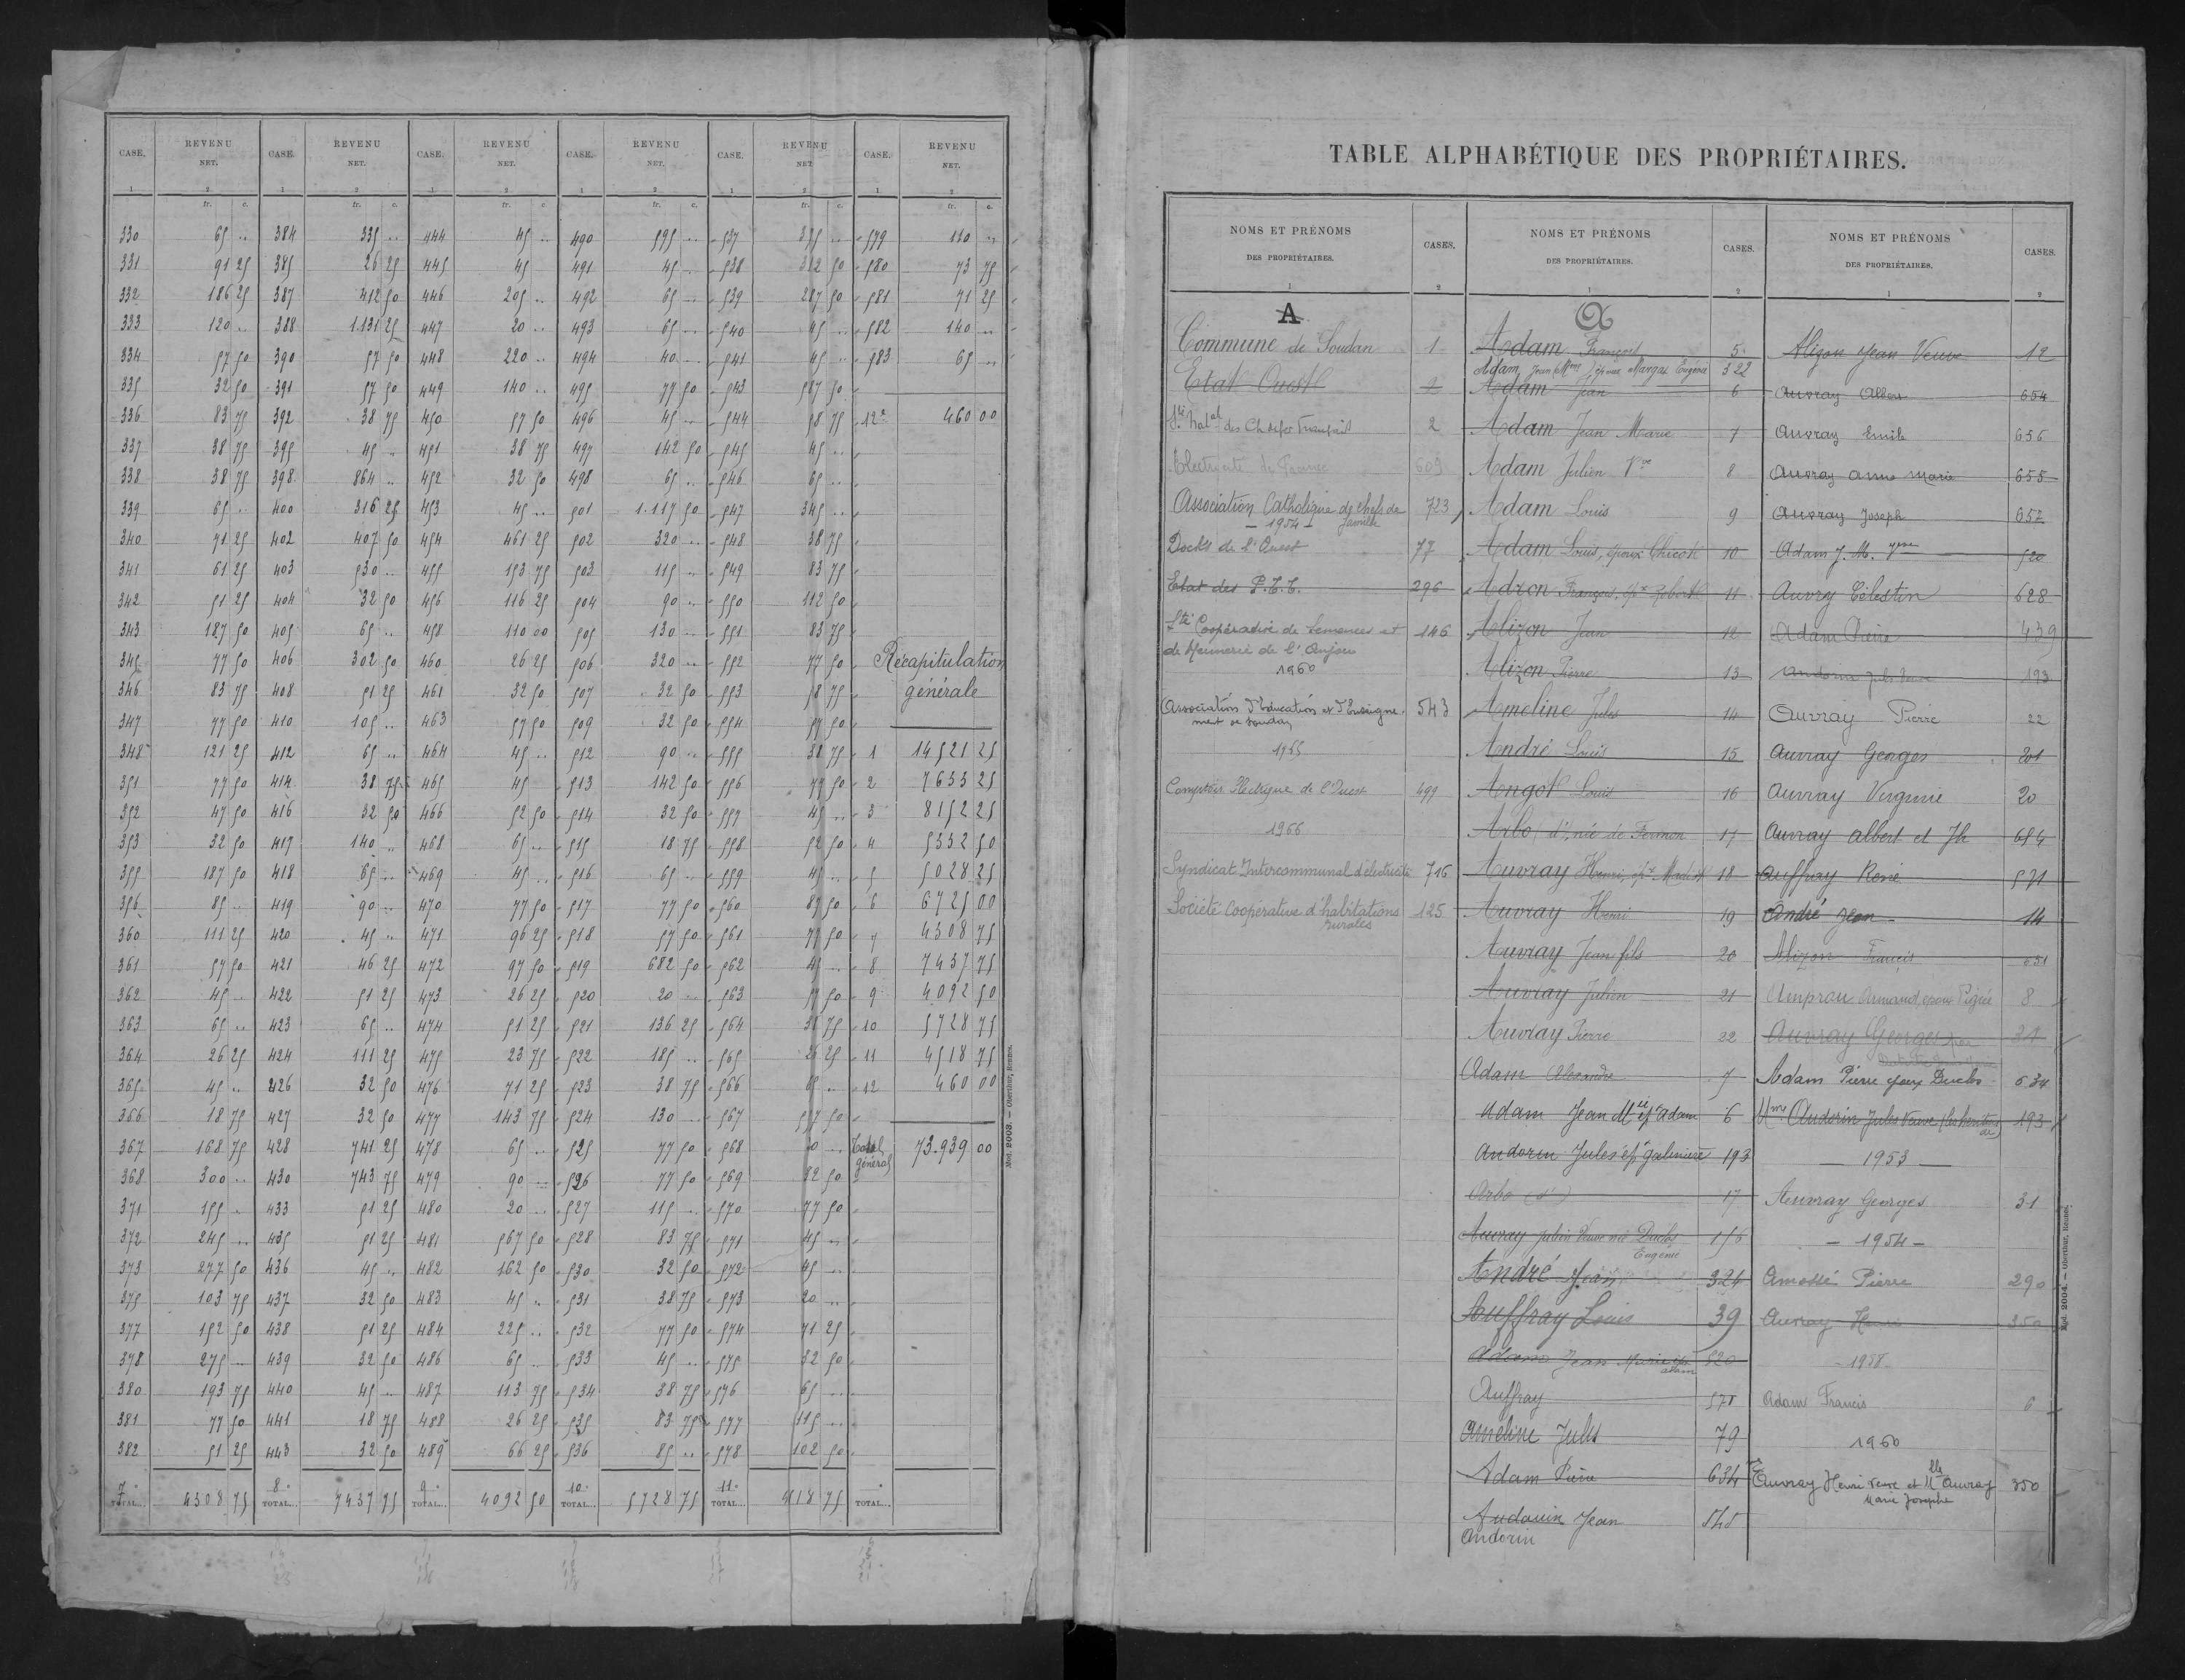 CASE. REVENU NET. CASE. REVENU NET. CASE. REVENU NET. CASE. REVENU NET. CASE. REVENU NET. CASE. REVENU NET.
1 2 1 2 1 2 1 2 1 2 1 2
fr. c. fr. c. fr. c. fr. c. fr. c. fr. c.
330 65 .. 384 335 .. 444 45 .. 490 595 .. 537 335 .. 579 110 ..
331 91 25 385 26 25 445 45 491 45 .. 538 312 50 580 73 75
332 186 25 387 412 50 446 205 .. 492 65 .. 539 287 50 581 71 25
333 120 .. 388 1.131 25 447 20 .. 493 65 .. 540 95 .. 582 140 ..
334 57 50 390 57 50 448 220 .. 494 40 .. 541 45 .. 583 65 ..
335 32 50 391 57 50 449 140 .. 495 77 50 543 587 50
336 83 75 392 38 75 450 57 50 496 45 .. 544 58 75 12e 460 00
337 38 75 395 45 .. 451 38 75 497 142 50 545 45 ..
338 38 75 398 864 .. 452 32 50 498 65 .. 546 65 ..
339 65 .. 400 316 25 453 45 .. 501 1.117 50 547 345 ..
340 71 25 402 407 50 454 461 25 502 320 .. 548 38 75
341 61 25 403 530 .. 455 153 75 503 115 .. 549 83 75
342 51 25 404 32 50 456 116 25 504 90 .. 550 112 50
343 187 50 405 65 .. 458 110 00 505 130 .. 551 83 75
345 77 50 406 302 50 460 26 25 506 320 .. 552 77 50 Récapitulation
346 83 75 408 51 25 461 32 50 507 32 50 553 58 75 générale
347 77 50 410 105 .. 463 57 50 509 32 50 554 57 50
348 121 25 412 65 .. 464 45 .. 512 90 .. 555 38 75 1 14521 25
351 77 50 414 38 75 465 45 513 142 50 556 77 50 2 7653 25
352 47 50 416 32 50 466 52 50 514 32 50 557 45 .. 3 8152 25
353 32 50 417 140 .. 468 65 .. 515 18 75 558 52 50 4 5332 50
355 187 50 418 85 .. 469 45 .. 516 65 .. 559 45 .. 5 5028 25
356 85 .. 419 90 .. 470 77 50 517 77 50 560 87 50 6 6725 00
360 111 25 420 45 .. 471 96 25 518 57 50 561 77 50 7 4308 75
361 57 50 421 46 25 472 97 50 519 682 50 562 45 .. 8 7437 75
362 45 .. 422 51 25 473 26 25 520 20 .. 563 57 50 9 4092 50
363 65 .. 423 65 .. 474 51 25 521 136 25 564 38 75 10 5728 75
364 26 25 424 111 25 475 23 75 522 185 .. 565 26 25 11 4518 75
365 45 .. 426 32 50 476 71 25 523 38 75 566 65 .. 12 460 00
366 18 75 427 32 50 477 143 75 524 130 .. 567 557 50
367 168 75 428 741 25 478 65 .. 525 77 50 568 20 .. Total général 73.939 00
368 300 .. 430 743 75 479 90 .. 526 77 50 569 32 50
371 155 .. 433 51 25 480 20 .. 527 115 .. 570 77 50
372 245 .. 435 51 25 481 567 50 528 83 75 571 45 ..
373 277 50 436 45 .. 482 162 50 530 32 50 572 45 ..
375 103 75 437 32 50 483 45 .. 531 38 75 573 20 ..
377 152 50 438 51 25 484 225 .. 532 77 50 574 71 25
378 275 .. 439 32 50 486 65 .. 533 45 .. 575 32 50
380 193 75 440 45 .. 487 113 75 534 38 75 576 65 ..
381 77 50 441 18 75 488 26 25 535 83 75 577 115 ..
382 51 25 443 32 50 489 66 25 536 85 .. 578 102 50
7e TOTAL... 4308 75 8e TOTAL... 7437 75 9e TOTAL... 4092 50 10e TOTAL... 5728 75 11e TOTAL... 4518 75 TOTAL...
Mod. 2003. — Oberthur, Rennes.
TABLE ALPHABÉTIQUE DES PROPRIÉTAIRES.
NOMS ET PRÉNOMS DES PROPRIÉTAIRES. CASES. NOMS ET PRÉNOMS DES PROPRIÉTAIRES. CASES. NOMS ET PRÉNOMS DES PROPRIÉTAIRES. CASES.
1 2 1 2 1 2
A
Commune de Soudan 1
Etat Ouest 2
Sté Natale des Ch de fer Français 2
Electricité de France 609
Association Catholique de chefs de famille 723
— 1954 —
Docks de l'Ouest 77
Etat des P.T.T. 296
Sté Coopérative de Semences et 146
de Meunerie de l'Anjou
1960
Association d'Education et d'Enseigne- 543
ment de Soudan
1965
Comptoir Electrique de l'Ouest 499
1966
Syndicat Intercommunal d'électricité 716
Société Coopérative d'habitations 125
rurales
A
Adam François 5
Adam Jean (Mme) Eugénie 322
Adam Jean 6
Adam Jean Marie 7
Adam Julien Vve 8
Adam Louis 9
Adam Louis, époux Chicot 10
Adron François 11
Alizon Jean 12
Alizon Pierre 13
Ameline Jules 14
André Louis 15
Angot Louis 16
Arbo (d'), née de Fermon 17
Auvray Henri 18
Auvray Henri 19
Auvray Jean fils 20
Auvray Julien 21
Auvray Pierre 22
Adam Alexandre 7
Adam Jean Mie ép. Adam 6
Andorin Jules ép. Galinière 193
Arbo (d') 17
Auvray Julien Veuve née Duclos 156
Eugénie
André Jean 324
Auffray Louis 39
Adam Jean Marie ép. Adam 520
Auffray 571
Ameline Jules 79
Adam Pierre 634
Audouin Jean 545
Andorin
Alizon Jean Veuve 12
Auvray Albert 654
Auvray Emile 656
Auvray Anne Marie 655
Auvray Joseph 652
Adam J. M. 520
Auvry Célestin 628
Adam Pierre 439
Andorin Jules Veuve 193
Auvray Pierre 22
Auvray Georges 201
Auvray Virginie 20
Auvray Albert et Jh 654
Auffray René 571
André Jean 14
Alizon Francis 631
Amprau Armand, époux Pigrée 8
Auvray Georges 31
Adam Pierre époux Duclos 634
Mme Andorin Jules Veuve (les héritiers de) 193
— 1953 —
Auvray Georges 31
— 1954 —
Amossé Pierre 290
Auvray Henri 350
— 1958
Adam Francis 6
1960
Auvray Henri Veuve et Mlle Auvray 350
Marie Josephe
Mod. 2004. — Oberthur, Rennes.